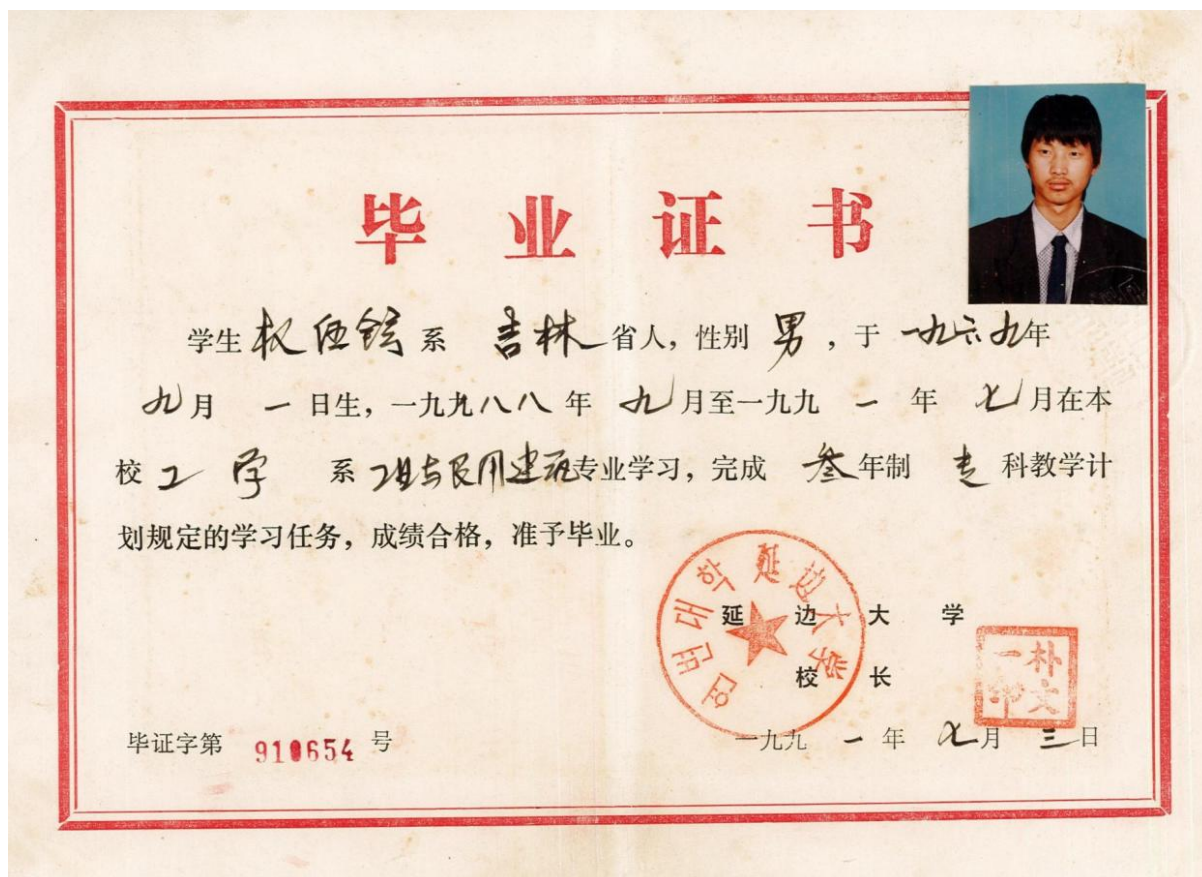 毕业证书
学生权伍鎋系 吉林省人，性别 男，于 一九六九年
九月 一日生，一九九八八年 九月至一九九 一 年 七月在本
校 工学 系 工业与民用建筑专业学习，完成 叁年制 专科教学计
划规定的学习任务，成绩合格，准予毕业。
연변대학 延边大学
延边大学
校长
朴文一印
毕证字第 910654 号
一九九 一 年 七月 三日